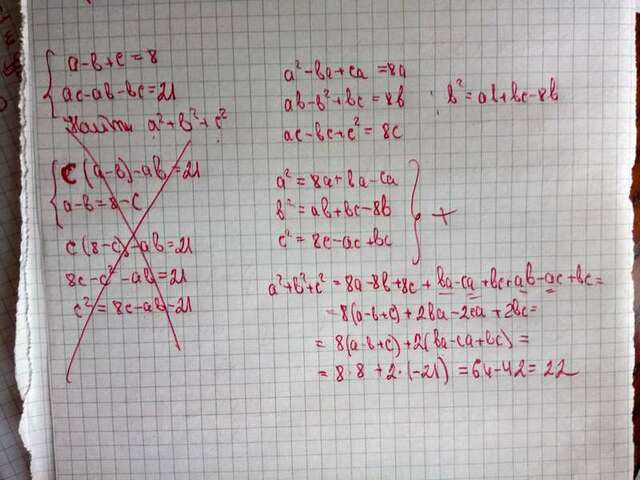 a-b+c=8
ac-ab-bc=21
Найти a²+b²+c²
c(a-b)-ab=21
a-b=8-c
c(8-c)-ab=21
8c-c²-ab=21
c²=8c-ab-21
a²-ba+ca=8a
ab-b²+bc=8b ; b²=ab+bc-8b
ac-bc+c²=8c
a²=8a+ba-ca
b²=ab+bc-8b
c²=8c-ac+bc
+
a²+b²+c²=8a-8b+8c+ba-ca+bc+ab-ac+bc=
=8(a-b+c)+2ba-2ca+2bc=
=8(a-b+c)+2(ba-ca+bc)=
=8·8+2·(-21)=64-42=22